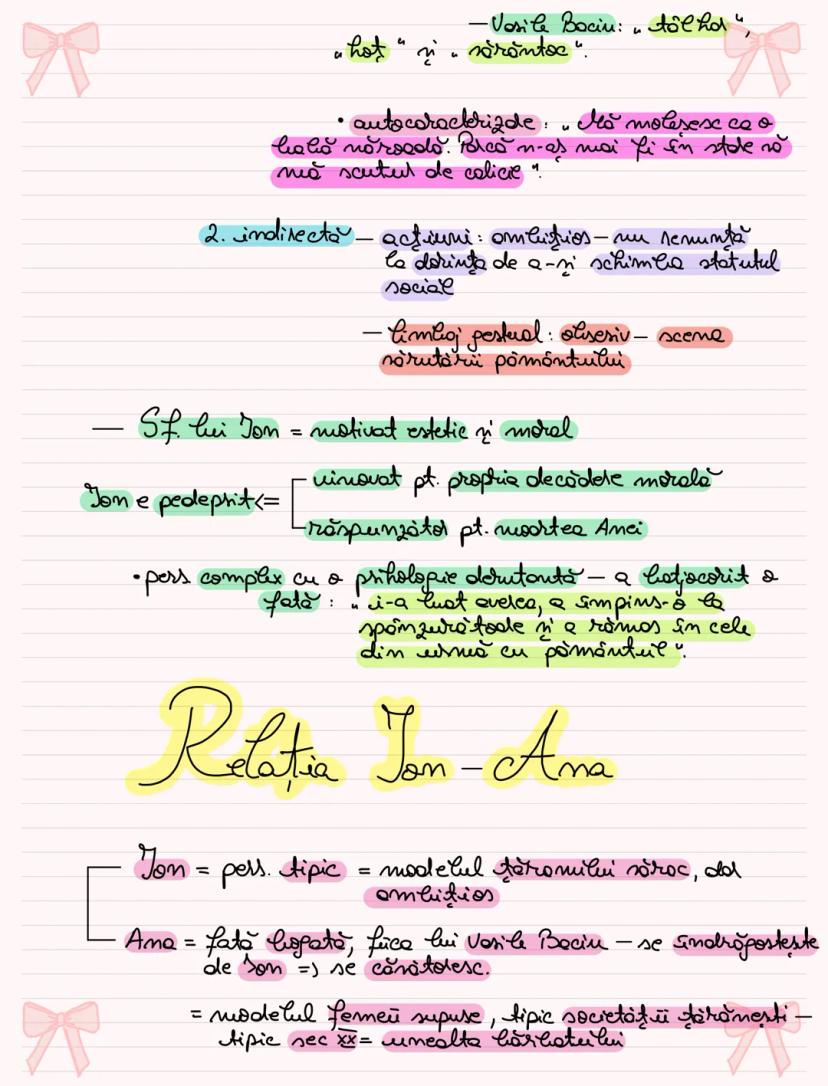 — Vasile Baciu: „tâlhar",
„hoț" și „sărăntoc".
• autocaracterizare: „Mă moleșesc ca o
babă năroadă. Parcă n-aș mai fi în stare să
mă scutur de calicie".
2. indirectă — acțiuni: ambițios — nu renunță
la dorința de a-și schimba statutul
social
— limbaj gestual: obsesiv — scena
sărutării pământului
— Sf. lui Ion = motivat estetic și moral
Ion e pedepsit <=
vinovat pt. propria decădere morală
răspunzător pt. moartea Anei
• pers complex cu o psihologie derutantă — a batjocorit o
fată: „i-a luat averea, a împins-o la
spânzurătoare și a rămas în cele
din urmă cu pământul".
Relația Ion — Ana
Ion = pers. tipic = modelul țăranului sărac, dar
ambițios
Ana = fată bogată, fiica lui Vasile Baciu — se îndrăgostește
de Ion => se căsătoresc.
= modelul femeii supuse, tipic societății țărănești —
tipic sec XX = unealta bărbatului